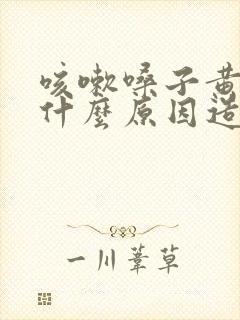 咳嗽嗓子黄
什麼原因造
一川葦草